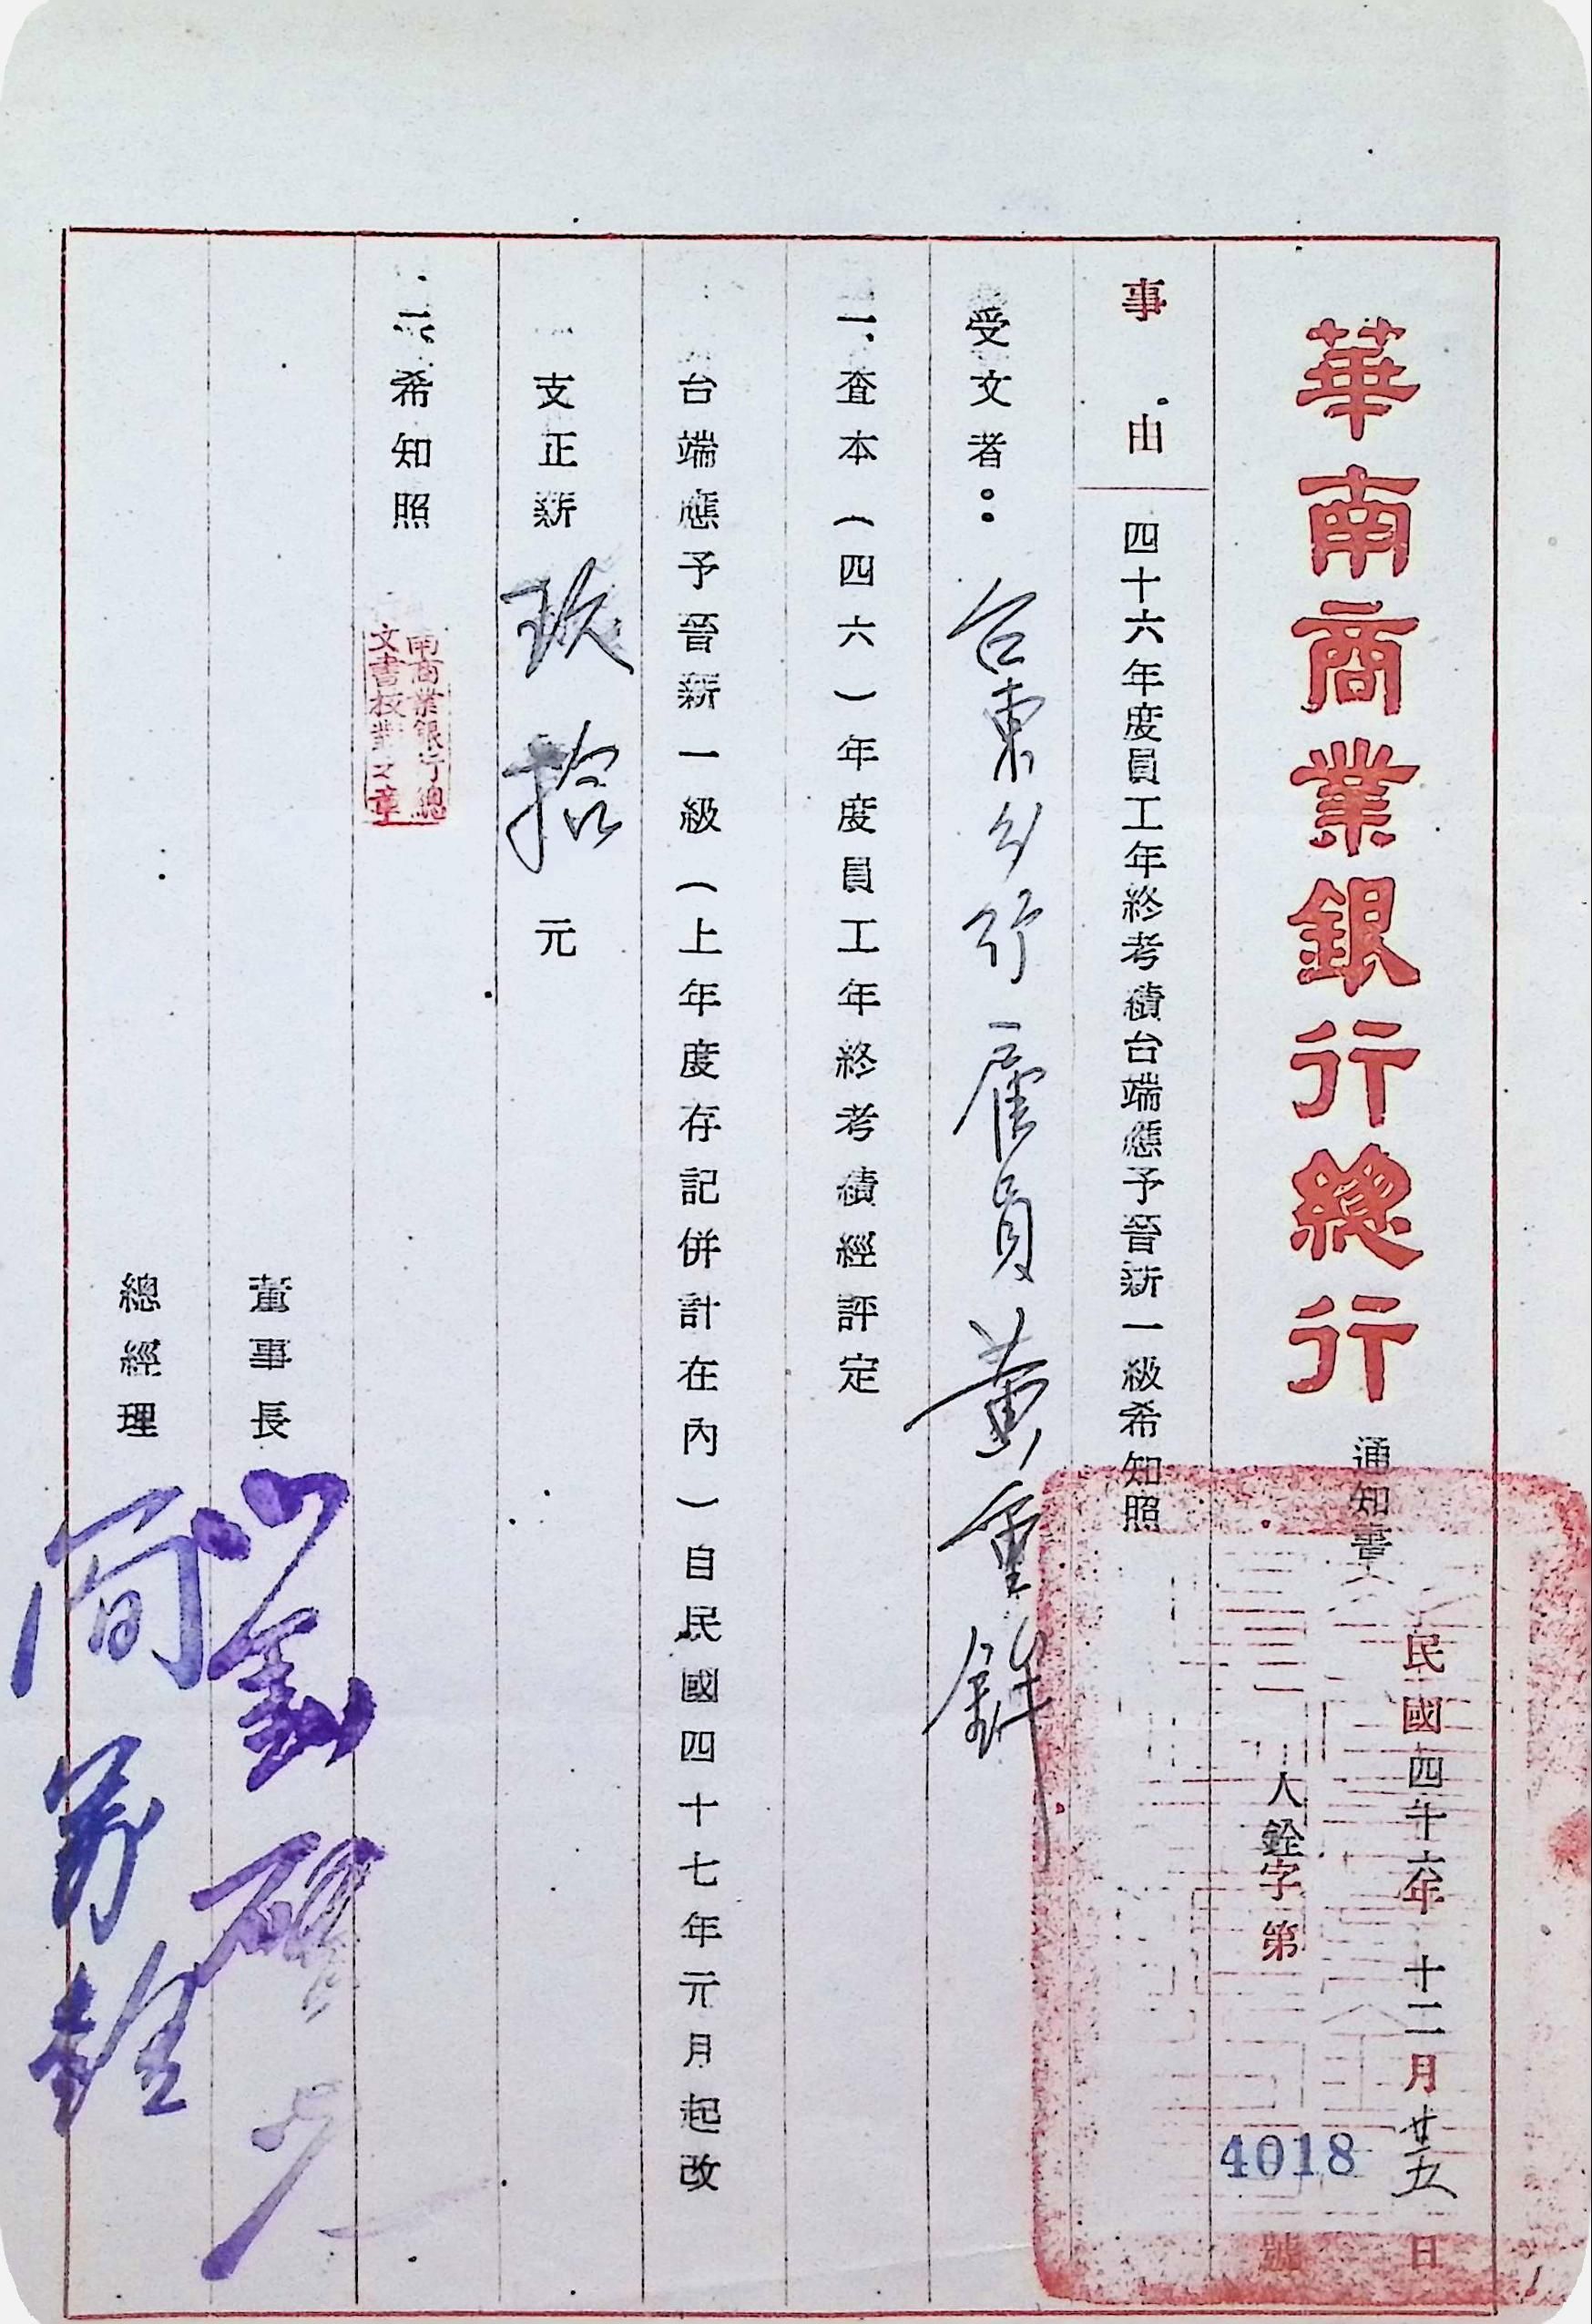 華南商業銀行總行 通知書
民國四十六年十二月廿五日
人銓字第4018號
事由 四十六年度員工年終考績台端應予晉薪一級希知照
受文者：台東分行雇員黃重鉡
一、查本（四六）年度員工年終考績經評定
台端應予晉薪一級（上年度存記併計在內）自民國四十七年元月起改
支正薪玖拾元
二、希知照
南商業銀行總
文書校對之章
董事長
總經理